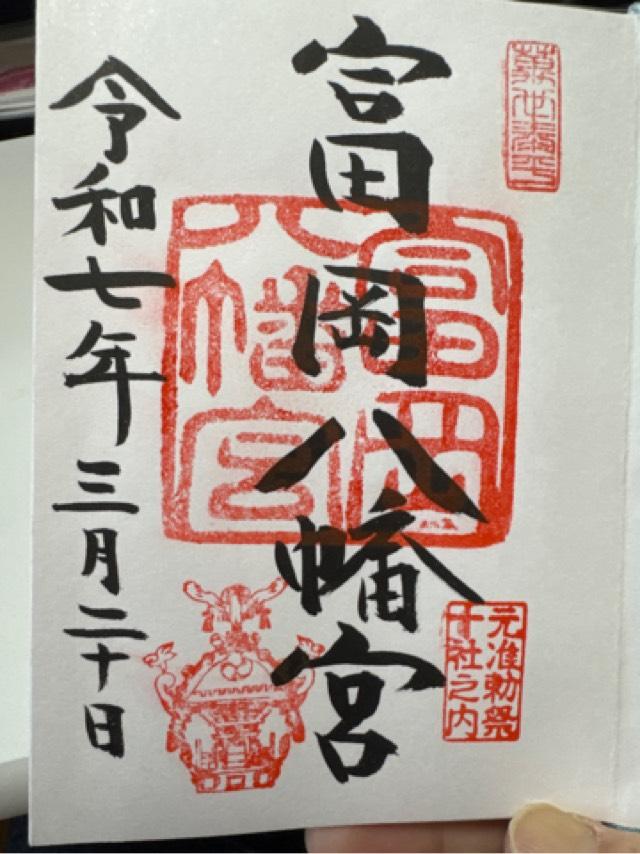 富岡八幡宮
富岡
八幡宮
元准勅祭
十社之内
令和七年三月二十日